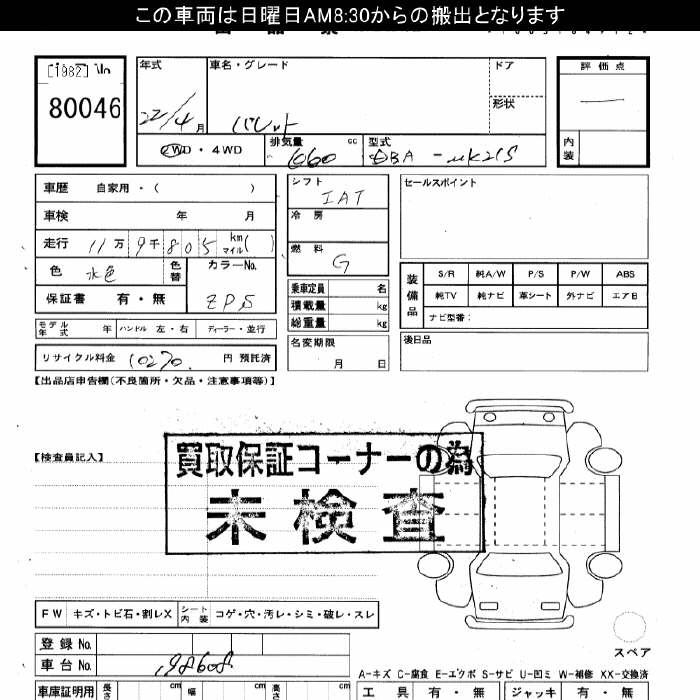 この車両は日曜日AM8:30からの搬出となります
[1982] No
80046
年式
22/4月
車名・グレード
パレット
ドア
形状
評価点
内装
2WD・4WD
排気量
660
cc
型式
DBA-MK21S
車歴 自家用・( )
車検 年 月
走行 11万9千805 km マイル( )
色 水色 色替
カラーNo.
ZPS
保証書 有・無
モデル年式 年 ハンドル 左・右 ディーラー・並行
リサイクル料金 10270 円 預託済
シフト
IAT
冷房
燃料
G
乗車定員 名
積載量 kg
総重量 kg
名変期限
月 日
セールスポイント
装備品
S/R 純A/W P/S P/W ABS
純TV 純ナビ 革シート 外ナビ エアB
ナビ型番:
後日品
【出品店申告欄(不良箇所・欠品・注意事項等)】
【検査員記入】
買取保証コーナーの為
未検査
FW キズ・トビ石・割レX シート内装 コゲ・穴・汚レ・シミ・破レ・スレ
登録No.
車台No. 198608
スペア
A-キズ C-腐食 E-エクボ S-サビ U-凹ミ W-補修 XX-交換済
車庫証明用 長さ cm 幅 cm 高さ cm
工具 有・無 ジャッキ 有・無